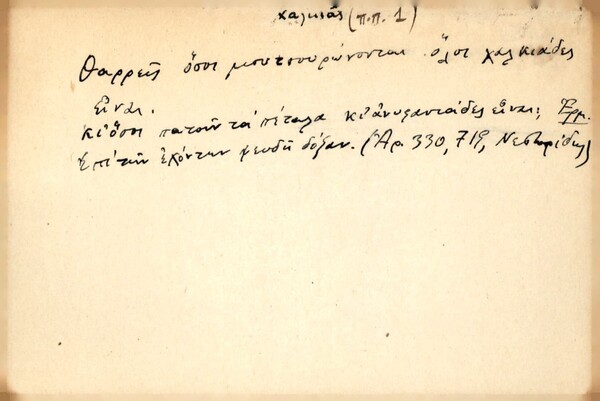 χαλκιάς (π.π. 1)
Θαρρεῖς ὅσοι μουτσουρώνονται ὅλοι χαλκιάδες
εἶναι.
κι ὅσοι πατοῦν τὰ πέταλα κι ἀνυφανταίδες εἶναι; Ἑρμ.
ἐπὶ τῶν ἐχόντων ψευδῆ δόξαν. (Ἀρ. 330, 719, Νεστορίδης)